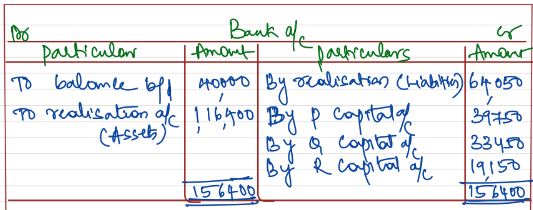 Dr Bank a/c Cr
Particulars Amount Particulars Amount
To balance b/d 40000 By realisation (Liabilities) 64050
To realisation a/c 116400 By P capital a/c 39750
(Assets) By Q Capital a/c 33450
By R Capital a/c 19,150
156400 156400